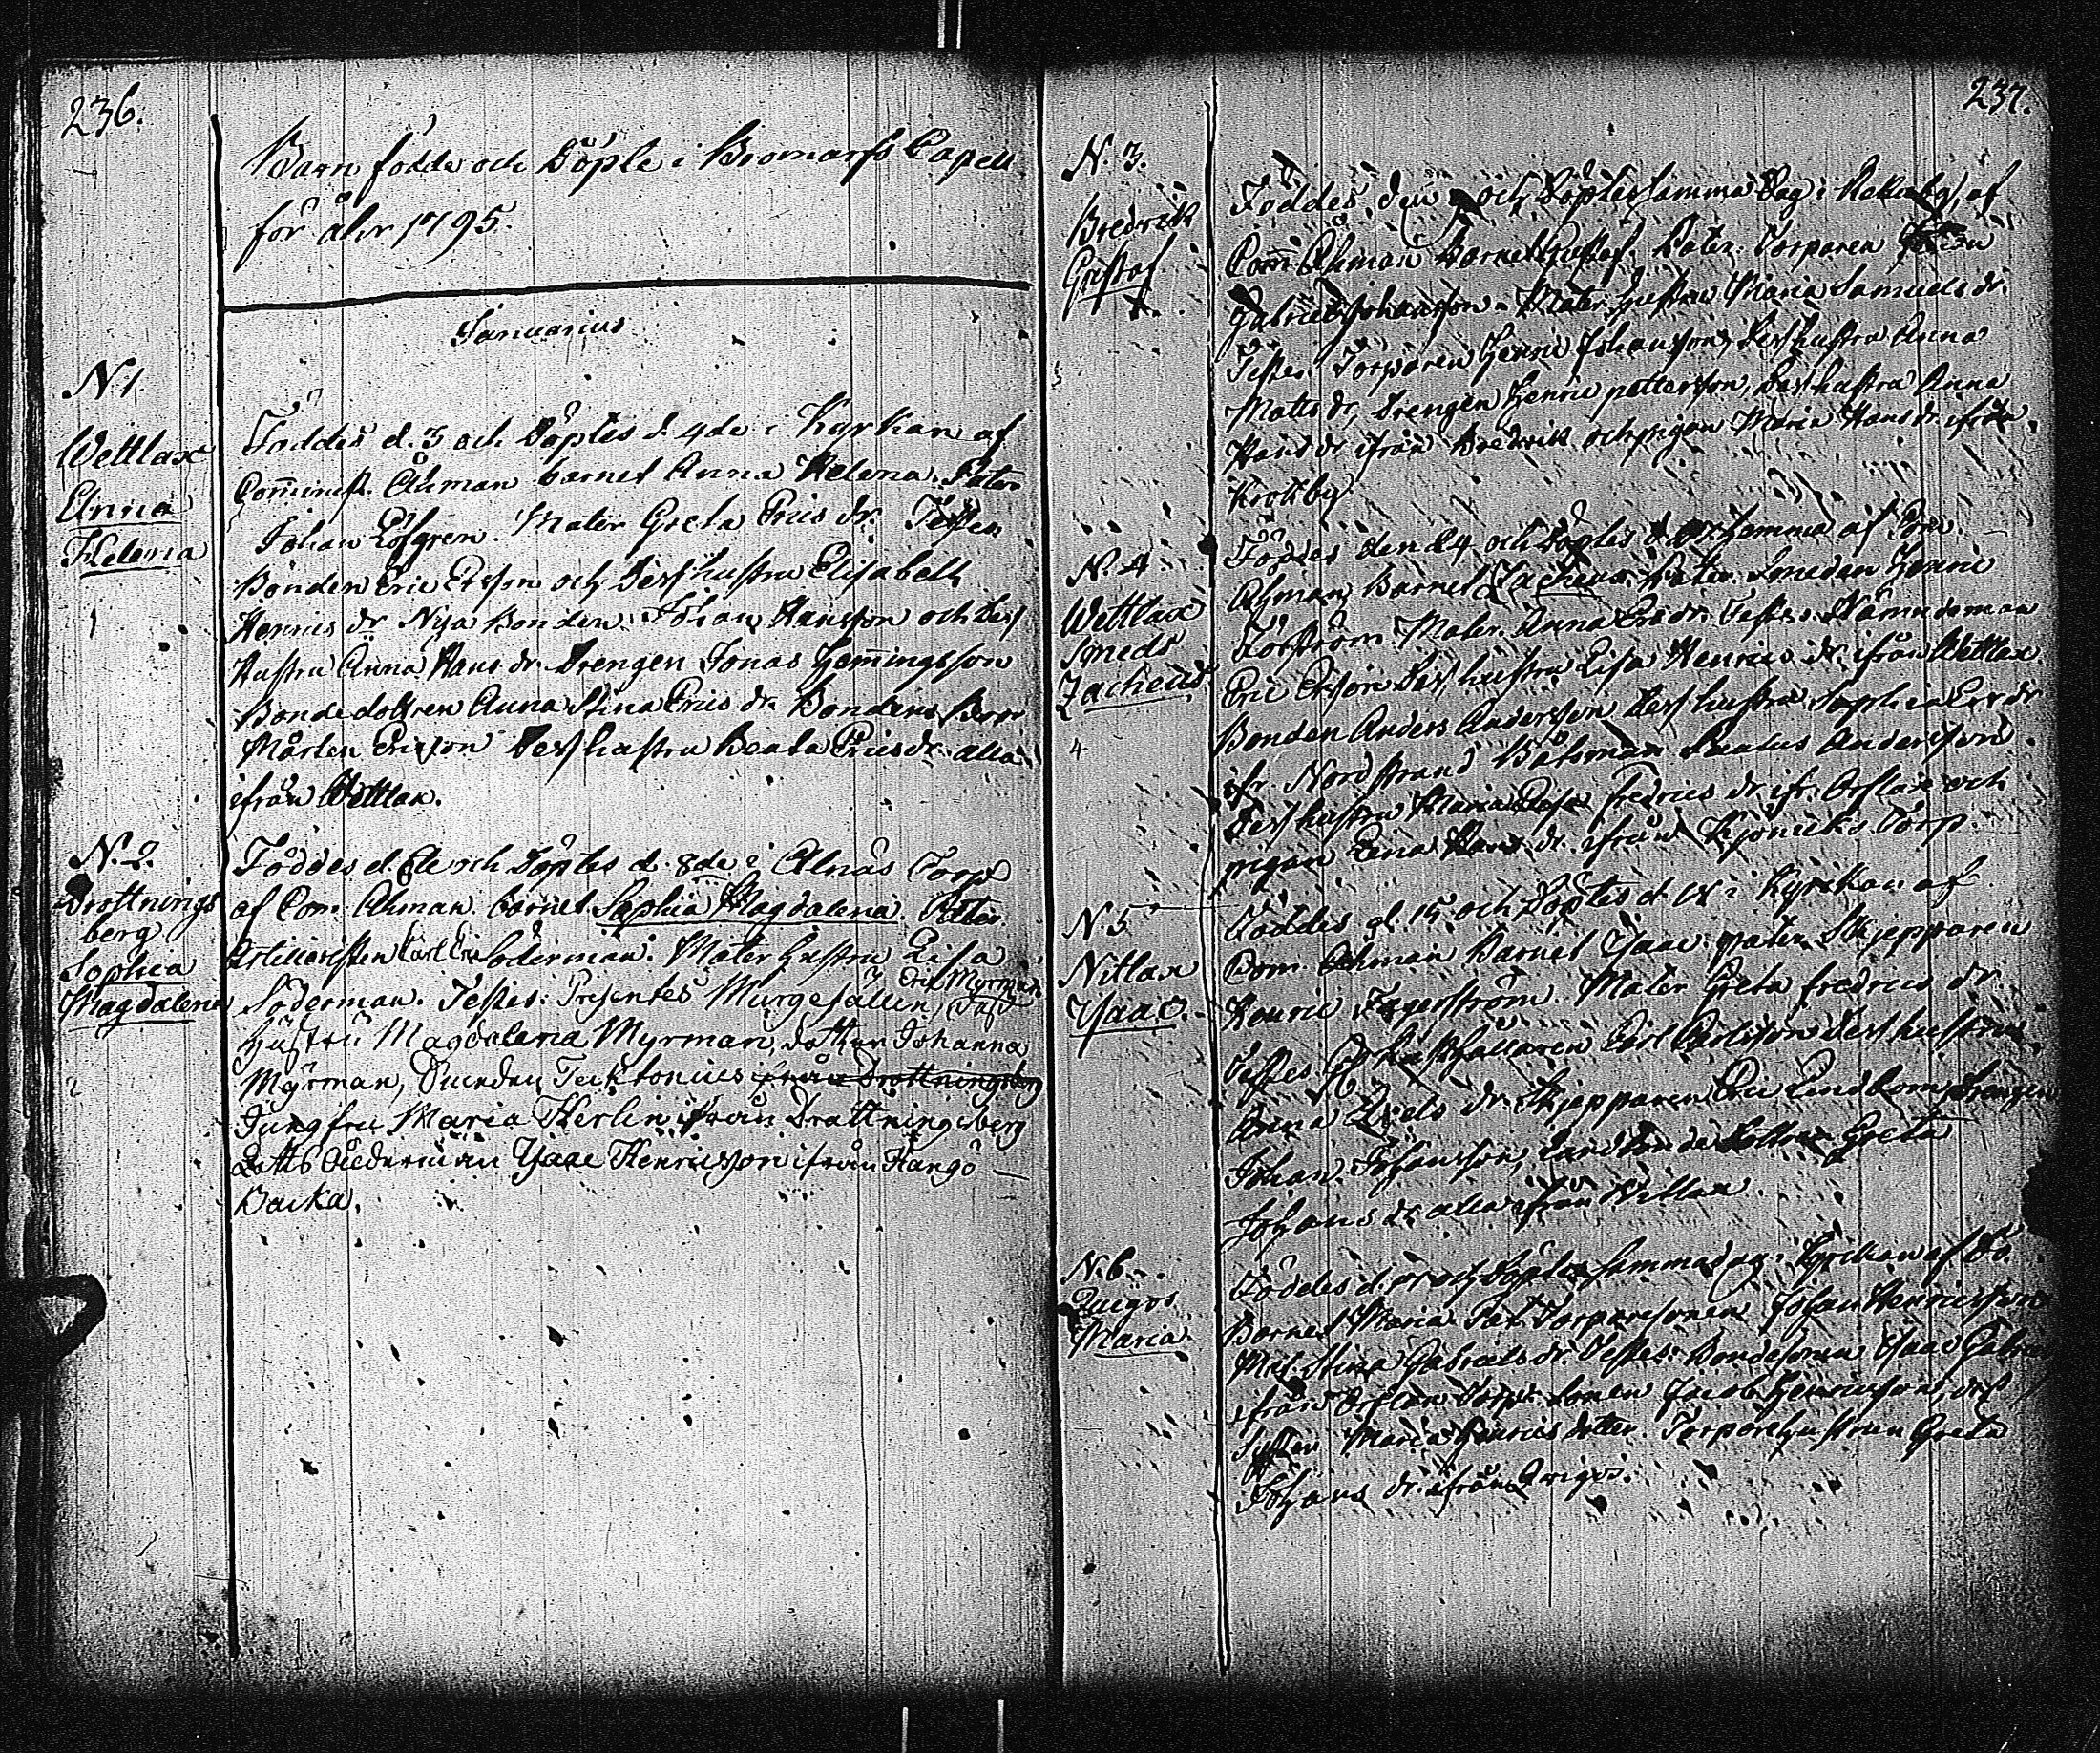 236.
Barn födde och Döpte i Bromarfs Capell
för åhr 1795.
Januarius
N. 1.
Wettlax
Anna
Helena
1
Föddes d. 3 och Döptes d. 4de i Kyrkan af
Comminist. Åhman barnet Anna Helena. Pater
Johan Löfgren. Mater Greta Erics dr. Testes
Bonden Eric Ersson och Dess hustru Elisabeth
Henrics dr Nya Bonden Johan Hansson och Dess
Hustru Anna Hans dr. Drengen Jonas Hemmingsson
Bondedottren Anna Stina Erics dr. Bondens Bror
Mårten Ericson Dess hustru Beata Erics dr. alla
ifrån Wettlax.
N. 2.
Drottnings
berg
Sophia
Magdalena
2
Föddes d. och Döptes d. 8de i Alnäs Torp
af Com. Åhman. barnet Sophia Magdalena. Pater
Artilleristen Carl Söderman. Mater Hustru Lisa
Söderman. Testes: Presentes Murgesällen Eric Myrman
Hustru Magdalena Myrman, dottren Johanna
Myrman, Tecktonius ifrån Drottningsberg
Jungfru Maria Herlin ifrån Drottningsberg
Lotts Ålderman Isaac Henricsson ifrån Hangö
Backa.
237.
N. 3.
Bredvik
Gustaf
Föddes den och Döptes samma Dag i af
Com. Åhman Barnet Gustaf. Pater. Torparen
Gabriel Johansson. Mater Hustru Maria Samuels dr.
Testes. Torparen Henric Johansson, Dess hustru Anna
Matts dr, Drengen Henric Pettersson, Dess hustru Anna
Hans dr ifrån Bredvik och pigan Maria Hans dr. ifrån
Krokby.
N. 4
Wettlax
Smeds
Zacheus
4
Föddes den 24 och Döptes d. hemma af Com.
Åhman Barnet Zacheus. Pater. Smeden Henric
Forström Mater. Anna Ers dr. Testes. Nämndeman
Eric Ersson Dess hustru Lisa Henrics dr. ifrån Wettlax.
Bonden Anders Andersson Dess hustru Sophia Ers dr
ifr. Nordstrand Båtsman Andersson
Dess hustru Maria Fredrics dr. ifr. och
pigan Lena Hans dr. ifrån Torp.
N. 5
Nitlax
Isaac.
Föddes d. 15 och Döptes d. i Kyrckan af
Com. Åhman Barnet Isaac. pater Skjepparen
Henric Fagerström. Mater Greta Fredrics dr.
Testes Carl Carlsson Dess hustru
Anna dr. Skjepparen Eric Lindblom, Drengen
Johan Johansson, Dottren Greta
Johans dr alla ifrån Nitlax.
N. 6.
Qvigos
Maria
Föddes d. och Döptes samma dag i Kyrckan af
Barnet Maria. Pat. Torparesonen Johan Henricsson
Mat. Stina Gabriels dr. Testes. Bondesonen Isaac
ifrån Torp. Sonen Jacob Henricsson, dess
Syster Maria Henrics dotter. Torparehustrun Greta
Johans dr. ifrån Qvigos.